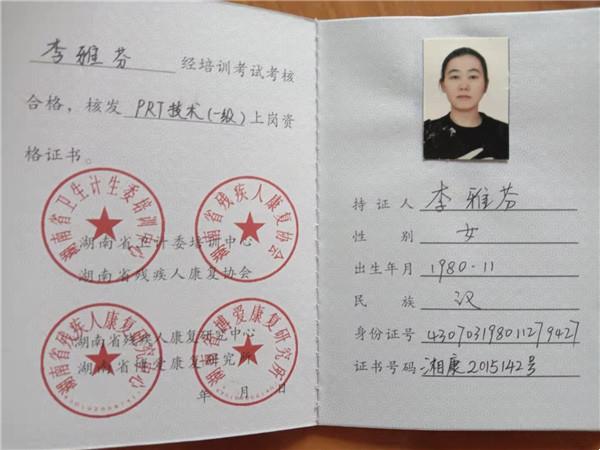 李雅芬 经培训考试考核
合格，核发 PRT技术(一级) 上岗资
格证书。
湖南省卫生计生委培训中心
湖南省残疾人康复协会
湖南省卫计委培训中心
湖南省残疾人康复协会
湖南省残疾人康复研究中心
湖南省博爱康复研究所
年 月 日
持证人 李雅芬
性 别 女
出生年月 1980.11
民 族 汉
身份证号 430703198011279427
证书号码 湘康2015142号